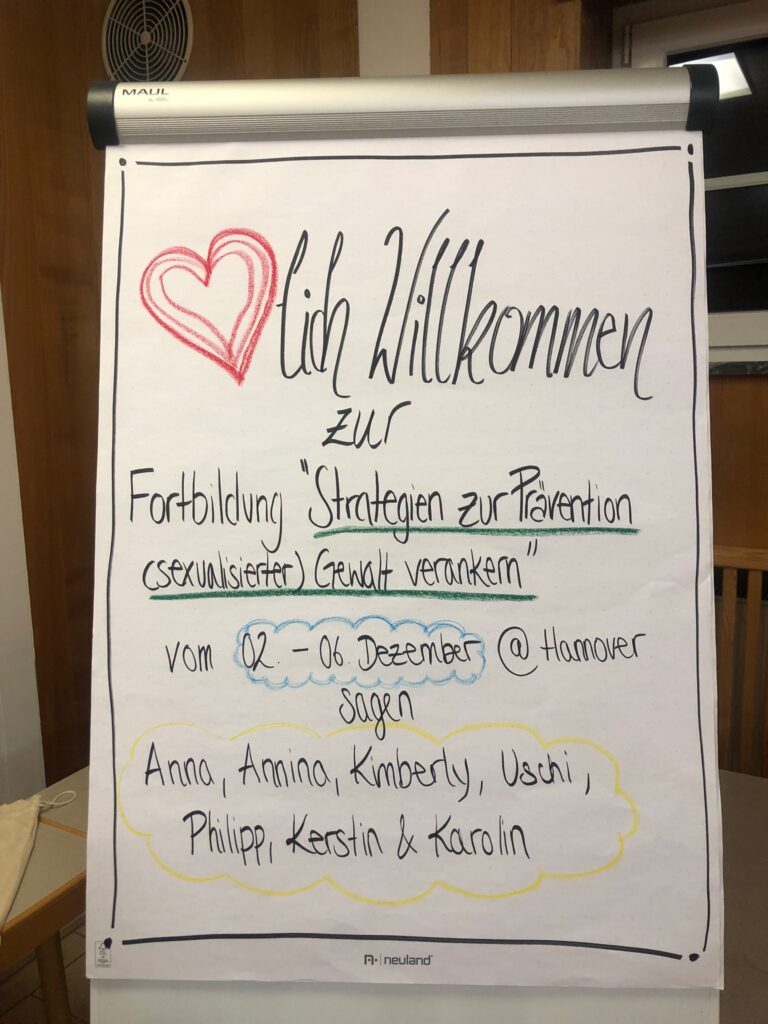 MAUL
lich Willkommen
zur
Fortbildung "Strategien zur Prävention
(sexualisierter) Gewalt verankern"
vom 02. - 06. Dezember @ Hannover
sagen
Anna, Annina, Kimberly, Uschi,
Philipp, Kerstin & Karolin
neuland